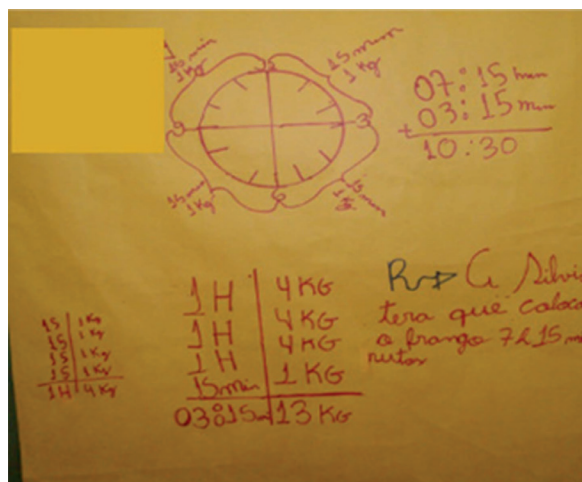 15 min
1 Kg
15 min
1 Kg
3
9
6
15 min
1 Kg
15 min
1 Kg
07:15 min
+ 03:15 min
10:30
15 | 1 Kg
15 | 1 Kg
15 | 1 Kg
15 | 1 Kg
1H | 4 Kg
1 H | 4 KG
1 H | 4 KG
1 H | 4 KG
15 min | 1 KG
03:15m | 13 KG
R→ A Silvi
tera que coloc
o frango 7h15 mi
nutos